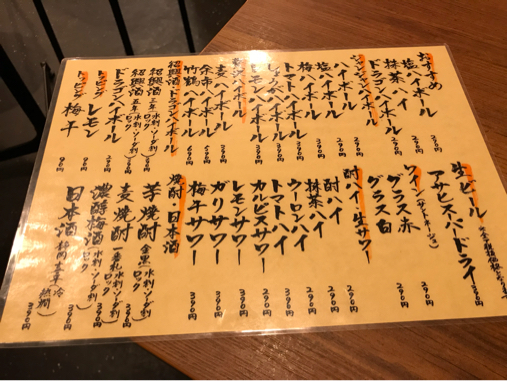 おすすめ
塩ハイボール 290円
抹茶ハイ 290円
ドラゴンハイボール
ハイボール 290円
塩ハイボール
梅ハイボール
トマトハイボール 390円
レモンハイボール 390円
麦ハイボール
余市ハイボール 690円
竹鶴ハイボール 690円
紹興酒ドラゴンハイボール
紹興酒
紹興酒
ドラゴンハイボール
トッピング レモン 90円
トッピング 梅干 90円
生ビール
アサヒスーパードライ 290円
ワイン
グラス赤 290円
グラス白 290円
酎ハイ 生サワー
酎ハイ 290円
抹茶ハイ 290円
ウーロンハイ 290円
トマトハイ
カルピスサワー 290円
レモンサワー 290円
ガリサワー 290円
梅干サワー 290円
焼酎・日本酒
芋焼酎 水割 ソーダ割 ロック 390円
麦焼酎 水割 ソーダ割 ロック
濃醇梅酒 水割 ソーダ割 ロック 390円
日本酒 390円